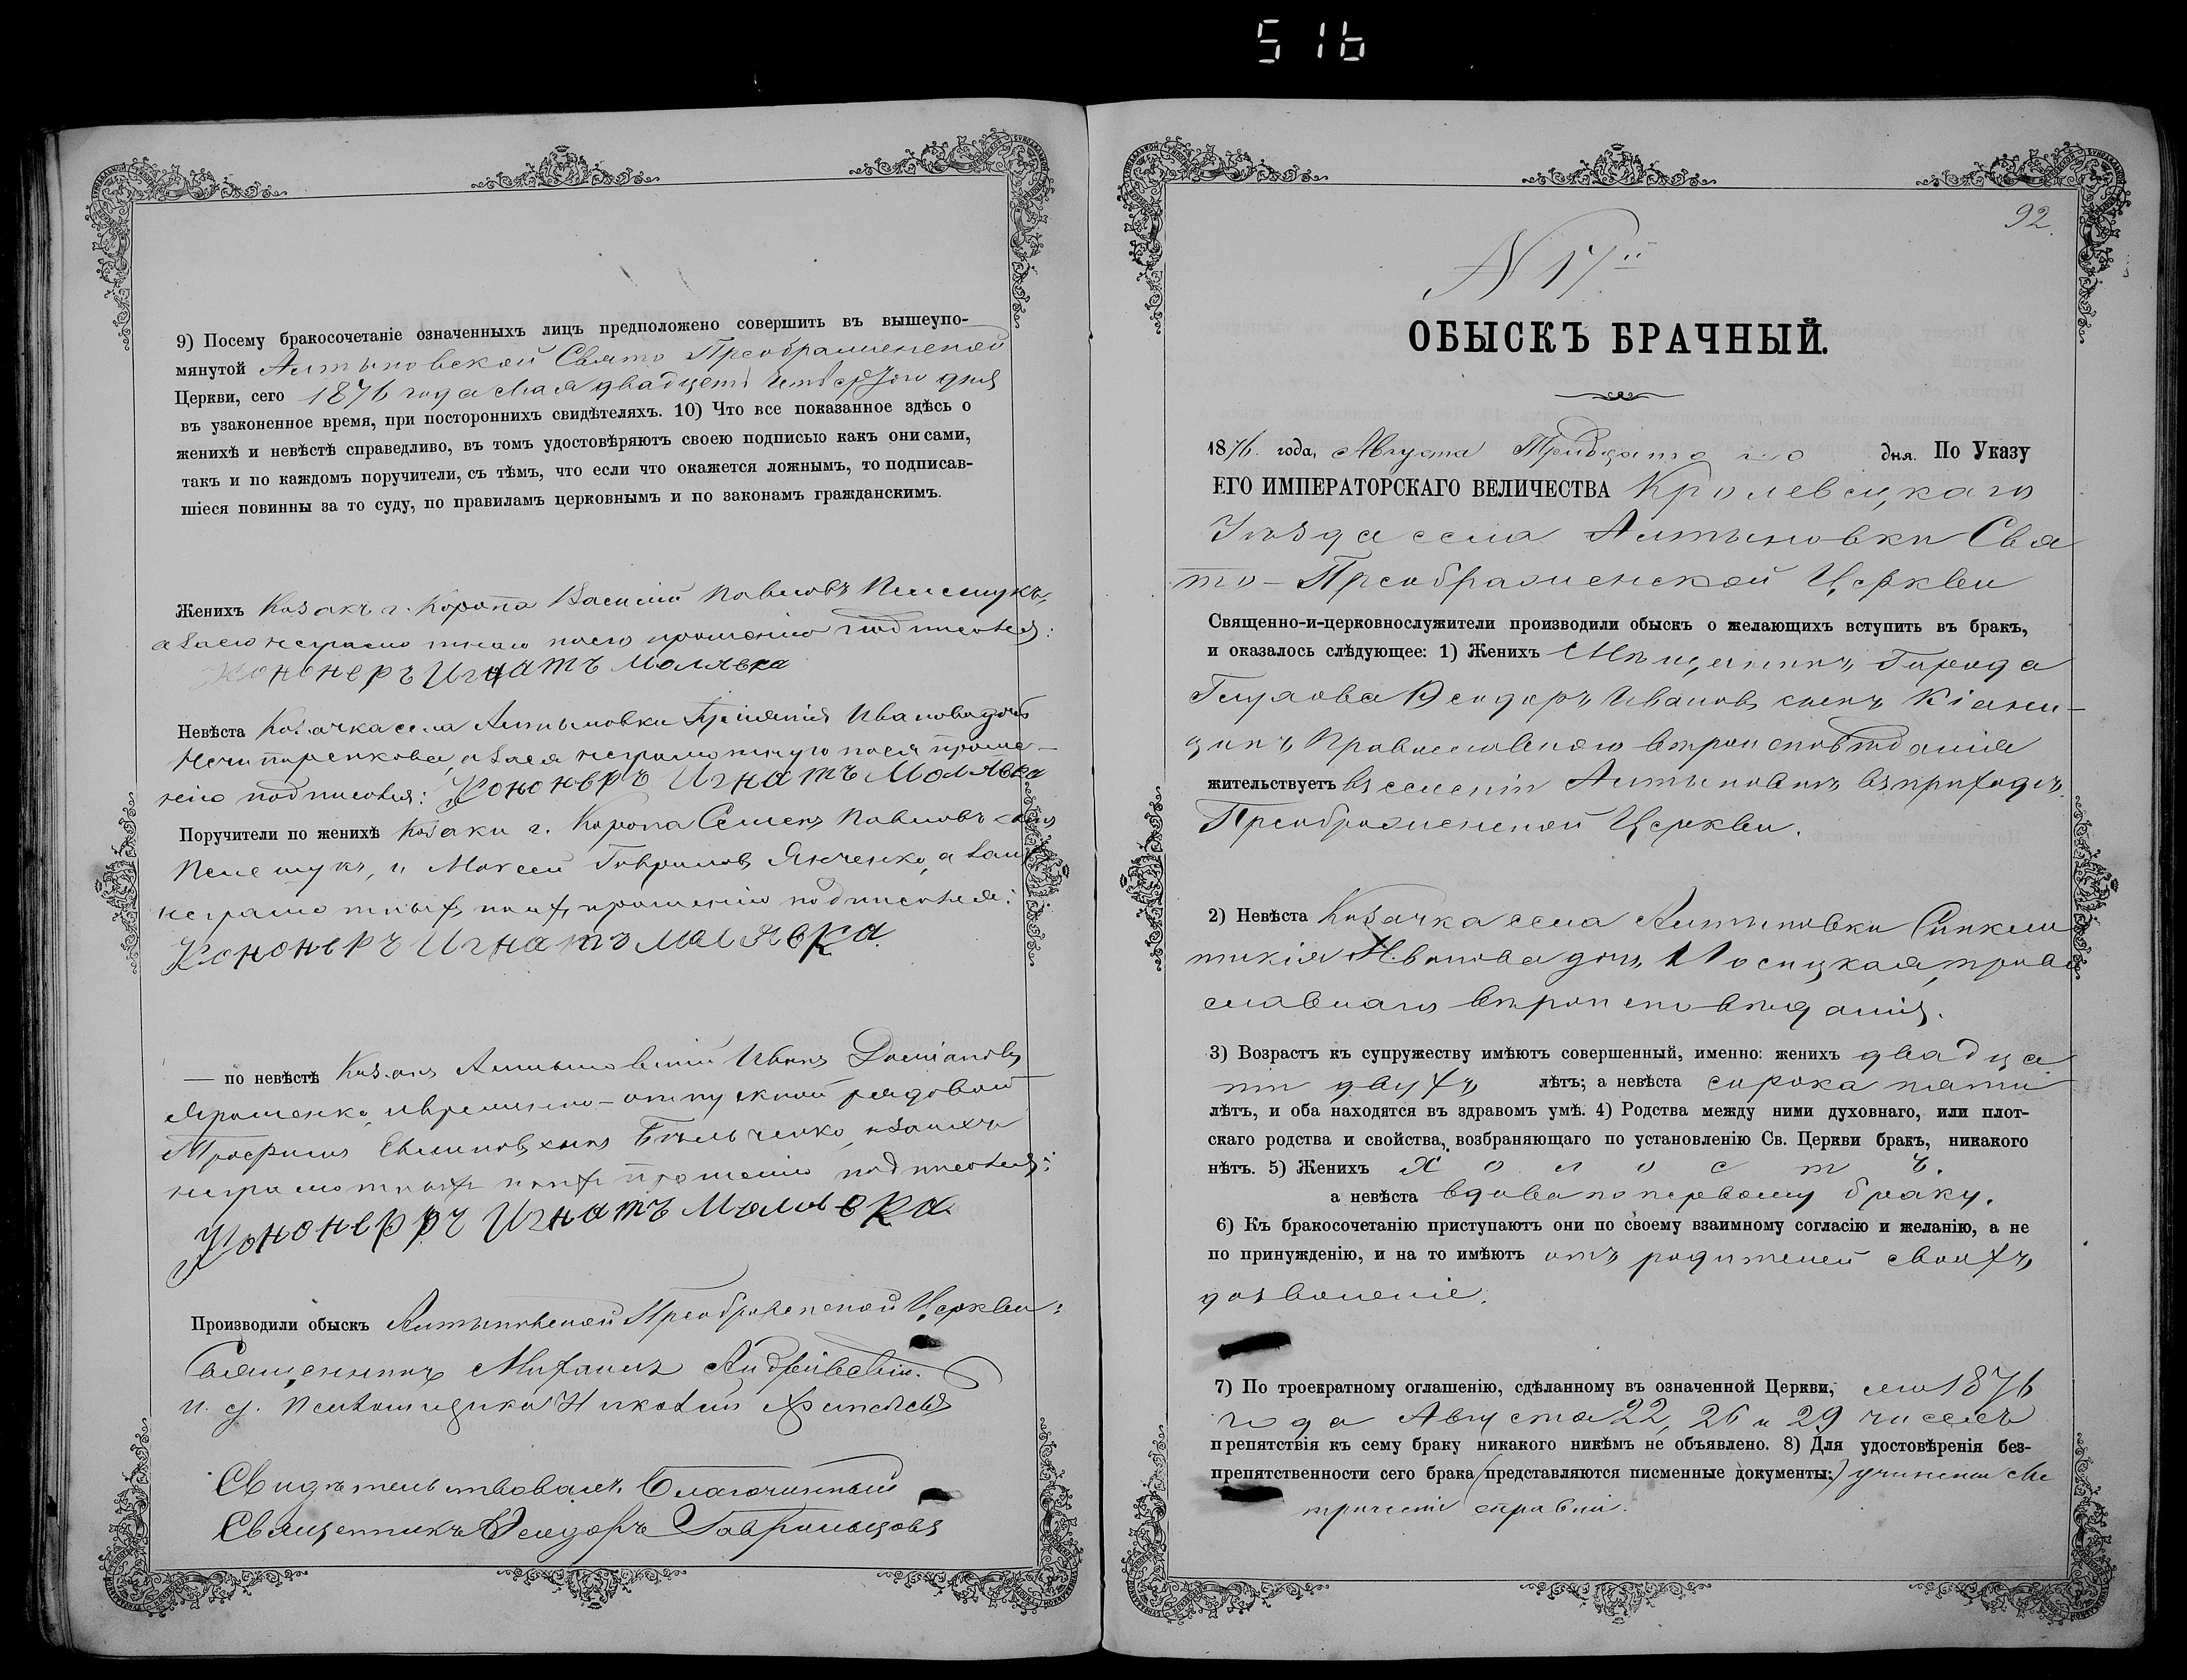 516
9) Посему бракосочетаніе означенныхъ лицъ предположено совершить въ вышеупо-
мянутой Алтыновской Свято Преображенской
Церкви, сего 1876 года Мая двадцать четвертого дня
въ узаконенное время, при постороннихъ свидѣтеляхъ. 10) Что все показанное здѣсь о
женихѣ и невѣстѣ справедливо, въ томъ удостовѣряютъ своею подписью какъ они сами,
такъ и по каждомъ поручители, съ тѣмъ, что если что окажется ложнымъ, то подписав-
шіеся повинны за то суду, по правиламъ церковнымъ и по законамъ гражданскимъ.
Женихъ Козакъ г. Коропа Василій Павловъ
а за него неграмотного по его прошенію подписался:
Кононеръ Игнатъ Малявка
Невѣста Козачка села Алтыновки Ивановадочь
Нечипоренкова, а за нея неграмотную по ея проше-
нію подписался: Кононеръ Игнатъ Малявка
Поручители по женихѣ Козаки г. Коропа Семенъ Павловъ сынъ
и Мокей Гавриловъ Янченко, а за ихъ
неграмотныхъ по ихъ прошенію подписался:
Кононеръ Игнатъ Малявка
— по невѣстѣ Козакъ Алтыновскій Иванъ Даміановъ
Ярошенко, и временно-отпускной рядовой
Трофимъ сынъ Бѣльченко, а за ихъ
неграмотныхъ по ихъ прошенію подписался:
Кононерръ Игнатъ Малявка.
Производили обыскъ Алтыновской Преображенской Церкви:
Священникъ Михаилъ Андріевскій.
и. д. Псаломщика Николай
Свидѣтельствовалъ Благочинный
Священникъ Феодоръ Гаврильцовъ
92.
N 17й
ОБЫСКЪ БРАЧНЫЙ.
1876. года, Августа Тридцатого дня. По Указу
ЕГО ИМПЕРАТОРСКАГО ВЕЛИЧЕСТВА Кролевецкаго
Уѣзда села Алтыновки Свя
то-Преображенской Церкви
Священно-и-церковнослужители производили обыскъ о желающихъ вступить въ бракъ,
и оказалось слѣдующее: 1) Женихъ Мѣщанинъ Города
Глухова Феодоръ Ивановъ сынъ Кіани-
цинъ Православного вѣроисповѣданія
жительствуетъ въ селеніи Алтыновкѣ въ приходѣ
Преображенской Церкви.
2) Невѣста Козачка села Алтыновки Синкли
тикія Иванова дочь Носицкая, право
славнаго вѣроисповѣданія.
3) Возрастъ къ супружеству имѣютъ совершенный, именно: женихъ двадца
ти двухъ лѣтъ; а невѣста сорока пяти
лѣтъ, и оба находятся въ здравомъ умѣ. 4) Родства между ними духовнаго, или плот-
скаго родства и свойства, возбраняющаго по установленію Св. Церкви бракъ, никакого
нѣтъ. 5) Женихъ Холостъ.
а невѣста вдова по первому браку.
6) Къ бракосочетанію приступаютъ они по своему взаимному согласію и желанію, а не
по принужденію, и на то имѣютъ отъ родителей своихъ
дозволеніе.
7) По троекратному оглашенію, сдѣланному въ означенной Церкви, сего 1876
года Августа 22, 26 и 29 чиселъ
препятствія къ сему браку никакого никѣмъ не объявлено. 8) Для удостовѣренія без-
препятственности сего брака (представляются писменные документы:) учинены ме
трическія справки.